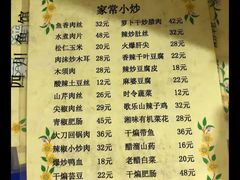 家常小炒
鱼香肉丝 32元
水煮肉片 48元
松仁玉米 20元
肉抹炒木耳 28元
木须肉 28元
酸辣土豆丝 18元
山芹肉丝 28元
尖椒肉丝 28元
青椒肥肠 48元
大刀回锅肉 36元
辣椒小炒肉 32元
爆炒鸭血 18元
干煸芸豆 22元
萝卜干炒腊肉 42元
辣炒肚丝
火爆肝尖
香辣千叶豆腐 22元
辣炒豆腐皮
麻婆豆腐
时令蔬菜
歌乐山辣子鸡
湘味有机菜花 28元
干煸带鱼
醋溜山药
老醋白菜
干煸肥肠 48元
四川菜馆